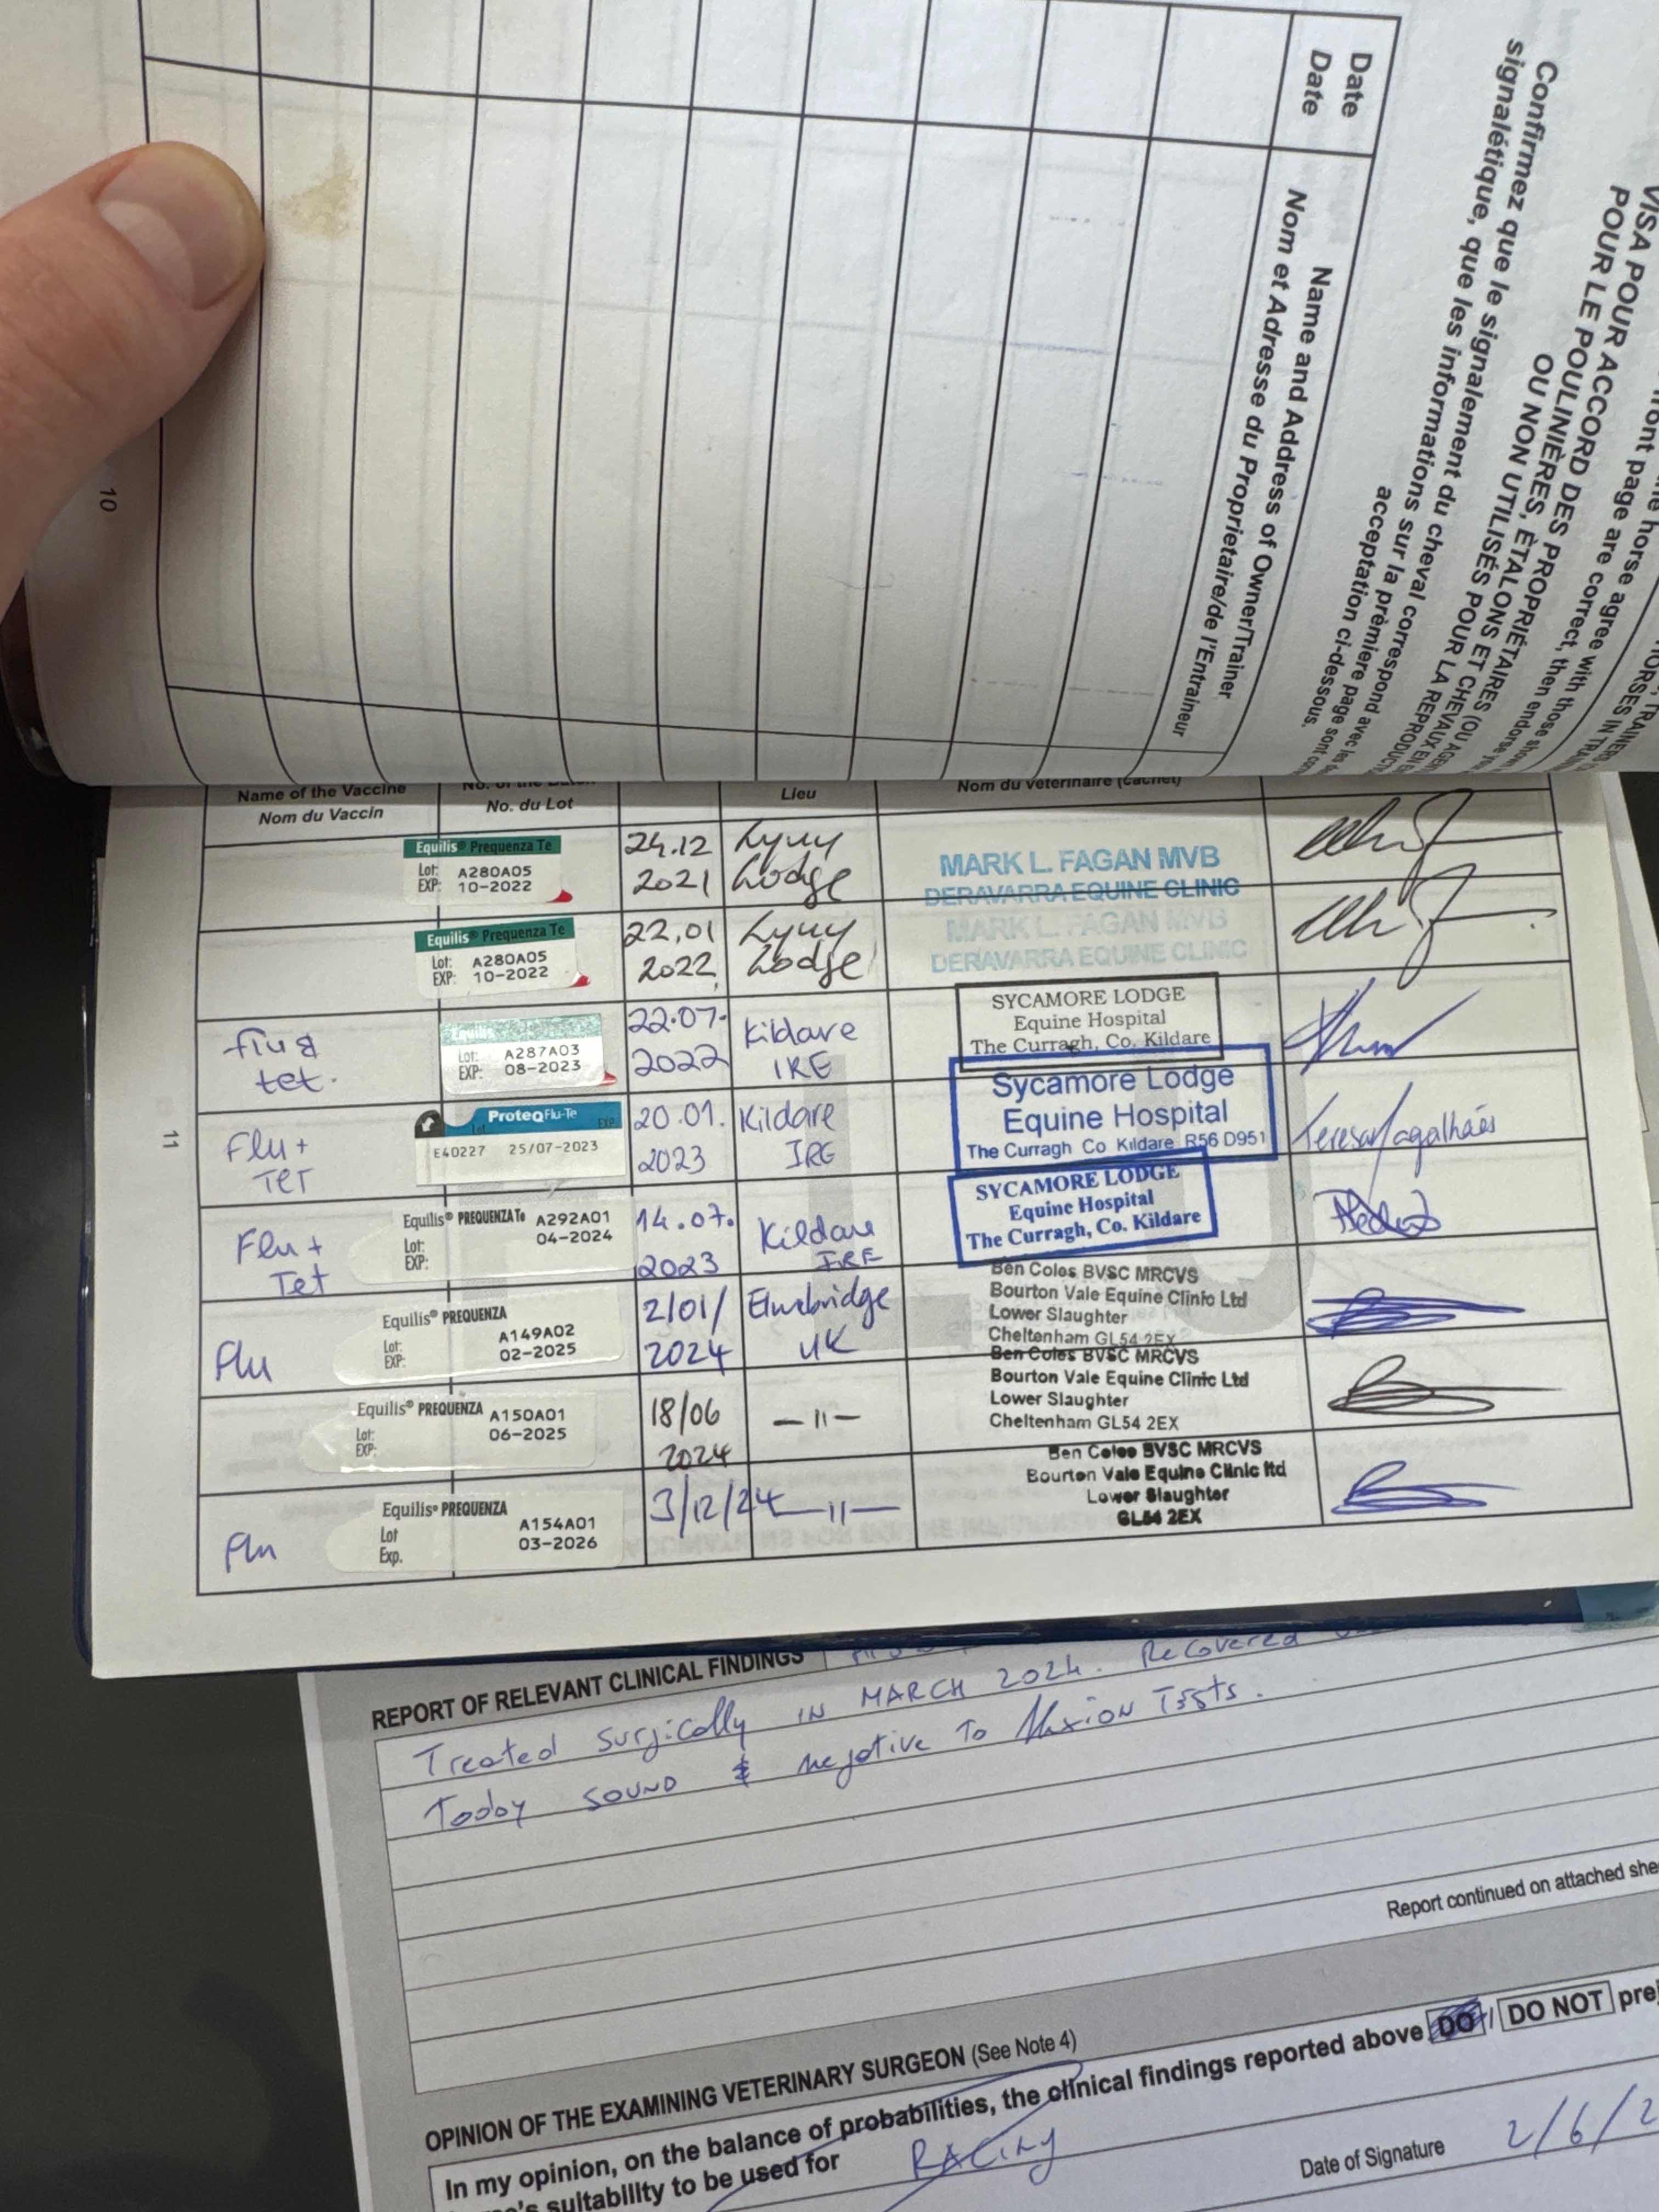 Date
Date
Name and Address of Owner/Trainer
Nom et Adresse du Propriétaire/de l'Entraîneur
front page are correct, then endorse
the horse agree with those shown
VISA POUR ACCORD DES PROPRIÉTAIRES (OU
POUR LE POULINIÈRES, ÉTALONS ET CHEVAUX EN
OU NON UTILISÉS POUR LA
Confirmez que le signalement du cheval correspond avec les
signalétique, que les informations sur la prèmiere page sont
acceptation ci-dessous.
10
11
Name of the Vaccine
Nom du Vaccin
No. du Lot
Lieu
Nom du vétérinaire (cachet)
Equilis® Prequenza Te
Lot: A280A05
EXP: 10-2022
24.12
2021
Lyny
Lodge
MARK L. FAGAN MVB
DERAVARRA EQUINE CLINIC
Equilis® Prequenza Te
Lot: A280A05
EXP: 10-2022
22.01
2022
Lyny
Lodge
MARK L. FAGAN MVB
DERAVARRA EQUINE CLINIC
flu &
tet.
Equilis
Lot: A287A03
EXP: 08-2023
22.07.
2022
Kildare
IRE
SYCAMORE LODGE
Equine Hospital
The Curragh, Co. Kildare
Flu +
Tet
ProteqFlu-Te
Lot EXP
E40227 25/07-2023
20.01.
2023
Kildare
IRE
Sycamore Lodge
Equine Hospital
The Curragh Co Kildare R56 D951
Teresa Magalhães
Flu +
Tet
Equilis® PREQUENZA Te A292A01
Lot: 04-2024
EXP:
14.07.
2023
Kildare
IRE
SYCAMORE LODGE
Equine Hospital
The Curragh, Co. Kildare
Flu
Equilis® PREQUENZA
Lot: A149A02
EXP: 02-2025
2/01/
2024
Elmbridge
UK
Ben Coles BVSC MRCVS
Bourton Vale Equine Clinic Ltd
Lower Slaughter
Cheltenham GL54 2EX
Equilis® PREQUENZA A150A01
Lot: 06-2025
EXP:
18/06
2024
—11—
Ben Coles BVSC MRCVS
Bourton Vale Equine Clinic Ltd
Lower Slaughter
Cheltenham GL54 2EX
Flu
Equilis® PREQUENZA
Lot A154A01
Exp. 03-2026
3/12/24
—11—
Ben Coles BVSC MRCVS
Bourton Vale Equine Clinic ltd
Lower Slaughter
GL54 2EX
REPORT OF RELEVANT CLINICAL FINDINGS
Treated surgically in MARCH 2024. Recovered
Today sound & negative to flexion Tests.
Report continued on attached
OPINION OF THE EXAMINING VETERINARY SURGEON (See Note 4)
In my opinion, on the balance of probabilities, the clinical findings reported above DO / DO NOT
suitability to be used for RACING
Date of Signature 2/6/2